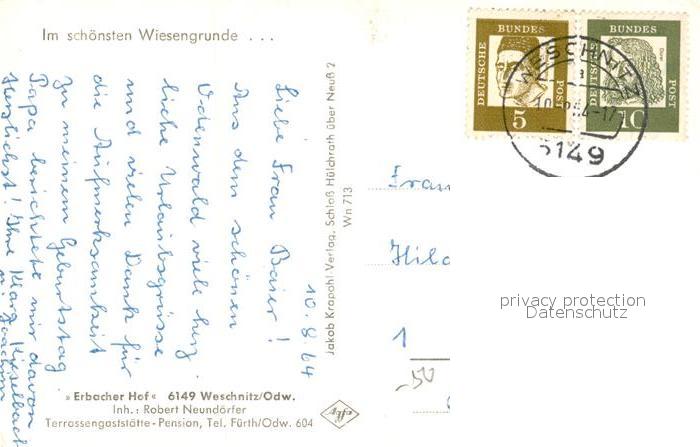 Im schönsten Wiesengrunde . . .
10. 8. 64
Liebe Frau Baier!
Aus dem schönen
Odenwald viele herz-
liche Urlaubsgrüsse
und vielen Dank für
die Aufmerksamkeit
zu meinem Geburtstag
Papa berichtete mir davon
Herzlichst! Ihre Marg. Kieselbach
u. Joachim
» Erbacher Hof « 6149 Weschnitz/Odw.
Inh.: Robert Neundörfer
Terrassengaststätte - Pension, Tel. Fürth/Odw. 604
Jakob Krapohl-Verlag, Schloß Hülchrath über Neuß 2
Wn 713
DEUTSCHE BUNDES POST
5
DEUTSCHE BUNDES POST
Dürer
10
WESCHNITZ
a
6149
Frau
Hild
1
-50
privacy protection
Datenschutz